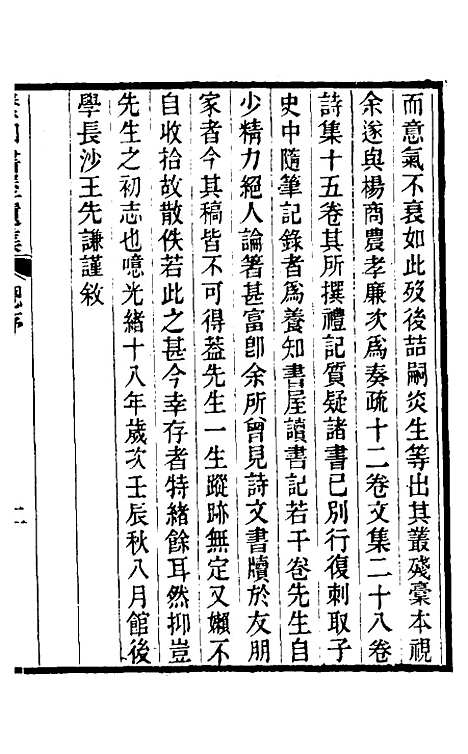 而意氣不衰如此歿後喆嗣炎生等出其叢殘稾本視
余遂與楊商農孝廉次爲奏疏十二卷文集二十八卷
詩集十五卷其所撰禮記質疑諸書已別行復刺取子
史中隨筆記錄者爲養知書屋讀書記若干卷先生自
少精力絕人論箸甚富卽余所曾見詩文書牘於友朋
家者今其稿皆不可得葢先生一生蹤跡無定又嬾不
自收拾故散佚若此之甚今幸存者特緒餘耳然抑豈
先生之初志也噫光緒十八年歲次壬辰秋八月館後
學長沙王先謙謹敘
總序
二